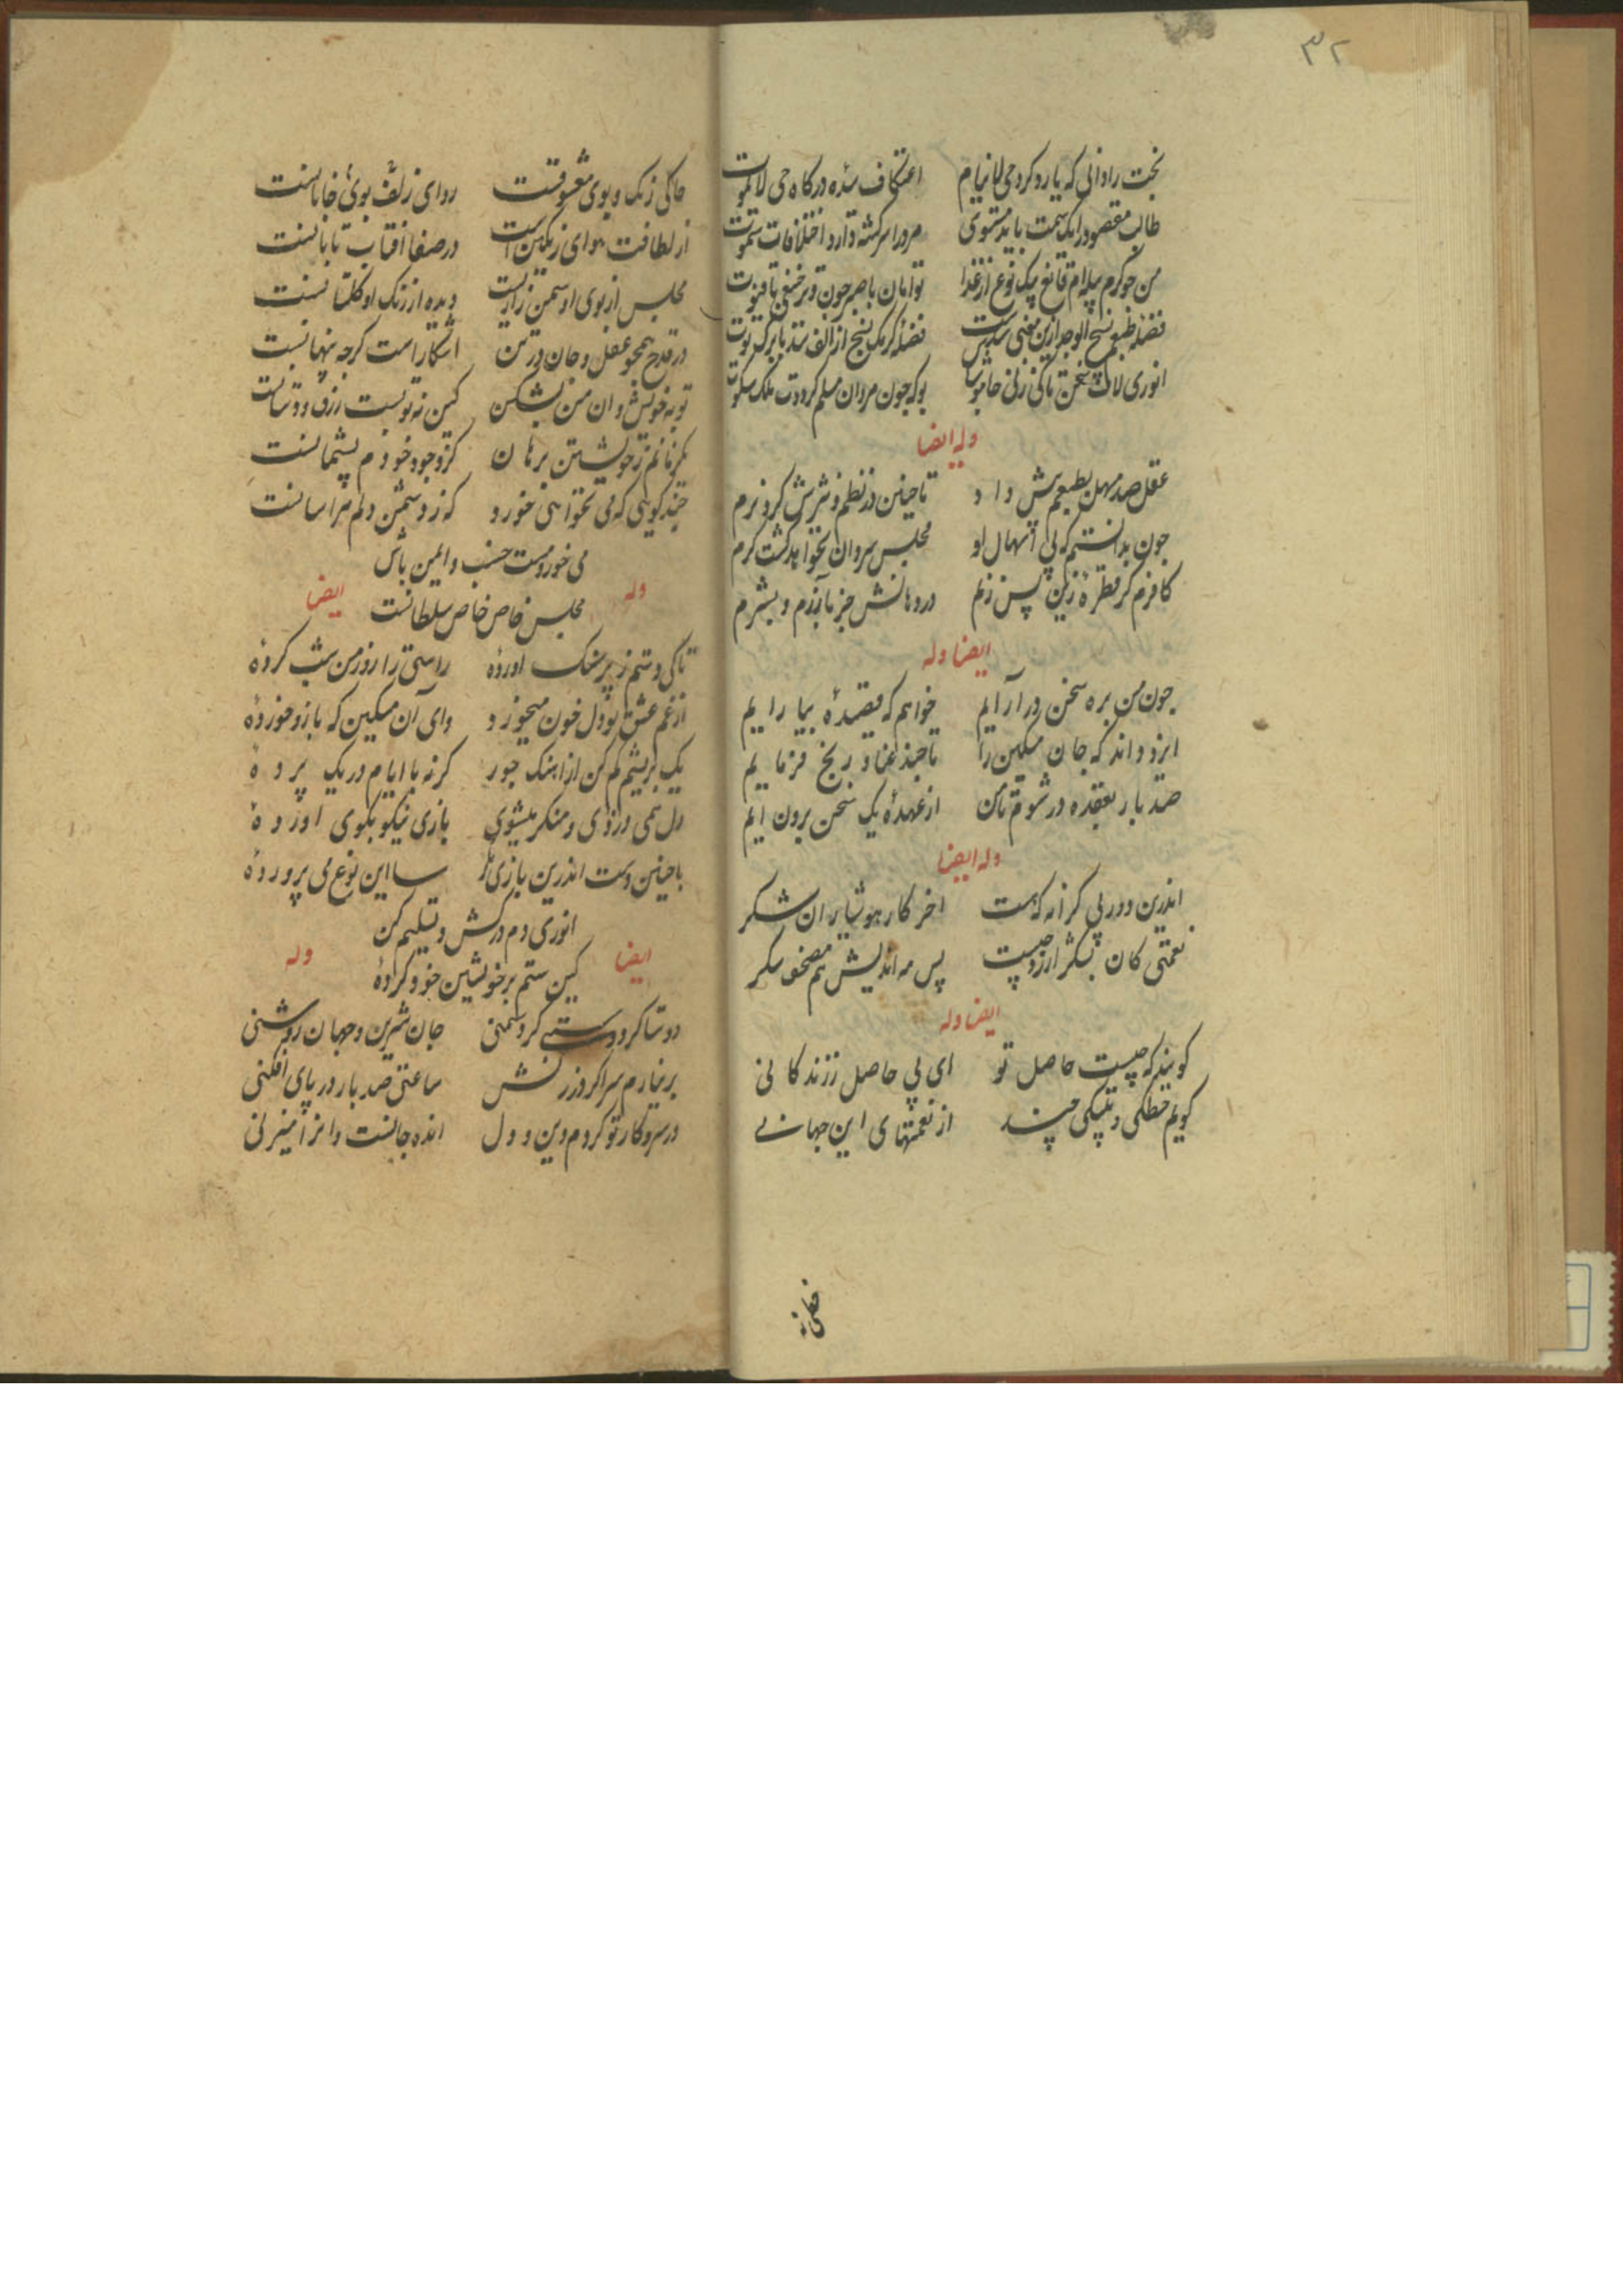 ۳۲
بخت را دانی که یارد کرد حی لاینام
اعتکاف سده درکاه حی لایموت
طالب مقصود را یک سمت باید مستوی
مرد را سرکشته دارد اختلافات سموت
من جو کرم پیله ام قانع بیک نوع از غذا
توامان با صبر جون وتر حنفی با قنوت
فضله طبعم نسیج الوحد ازین معنی شدست
فضله کرمک نسج از الف شد با برک توت
انوری لاف سخن تا کی زنی خاموش باش
بو که جون مردان مسلم کرددت ملک سکوت
وله ایضا
عقل صد مهل بطبعم بیش داد
تا جنین در نظم و نثرش کرد نرم
جون بدانستم که بی اسهال او
مجلس سروان نخواهد کشت کرم
کافرم کر قطرهٔ زین پس زنم
در دهانش جز بآزرم و بشرم
ایضا وله
جون من بره سخن درآرایم
خواهم که قصیدهٔ بیارایم
ایزد داند که جان مسکین را
تا جند عنا و رنج فرمایم
صد بار بعقده در شوم تا من
از عهدهٔ یک سخن برون ایم
وله ایضا
اندرین دور بی کرانه که هست
اخر کار هوشیاران شکر
نعمتی کان بشکر ارزد جیست
پس مه اندیش هم مصحف شکر
ایضا وله
کویند که جیست حاصل تو
ای بی حاصل ززندکانی
کویم خطکی و بیتکی چند
از نعمتهای این جهانی
حاکی زنک و بوی معشوقست
ردای زلف بوئ خانانست
از لطافت هوای رنکین است
در صفا افتاب تابانست
مجلس از بوی او سمن زارست
دیده از رنک او کلستانست
در قدح همجو عقل و جان در تن
اشکار است کرجه پنهانست
توبه خویش و ان من بشکن
کین نه توبست زرق و دستانست
مکر مانم ز خویشتن برهان
کز وجود خودم پشیمانست
جند کویی که می نخواهی خورد
که ز دشمن دلم هراسانست
می خور و مست خسب و ایمن باش
مجلس خاص خاص سلطانست
وله
ایضا
تا کی دستم زیر سنک اوردهٔ
راستی را روز من شب کردهٔ
از غم عشق تو دل خون میخورد
وای آن مسکین که با زو خوردهٔ
یک بریشم کم کن از اهنک جور
کر نه با ایام در یک پردهٔ
دل همی دزدی و منکر میشوی
بازی نیکو بکوی اوردهٔ
با جنین دست اندرین بازی مکر
سالها این نوع می پروردهٔ
انوری دم درکش و تسلیم کن
کین ستم بر خویشتن خود کردهٔ
ایضا
وله
دوستا کر دوستی کر دشمنی
جان شیرین و جهان روشنی
بر نیارم سر اکر در زنش
ساعتی صد بار در پای افکنی
در سر و کار تو کردم دین و دل
انده جانست وانرا میزنی